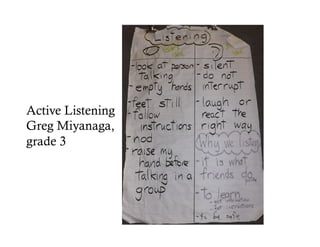 Active Listening
Greg Miyanaga,
grade 3
Listening
-look at person
talking
-empty hands
-feet still
-follow
instructions
-nod
-raise my
hand before
talking in a
group
-silent
-do not
interrupt
-laugh or
react the
right way
Why we listen
-it is what
friends do
-to learn
-get information
-for instructions
-to be safe